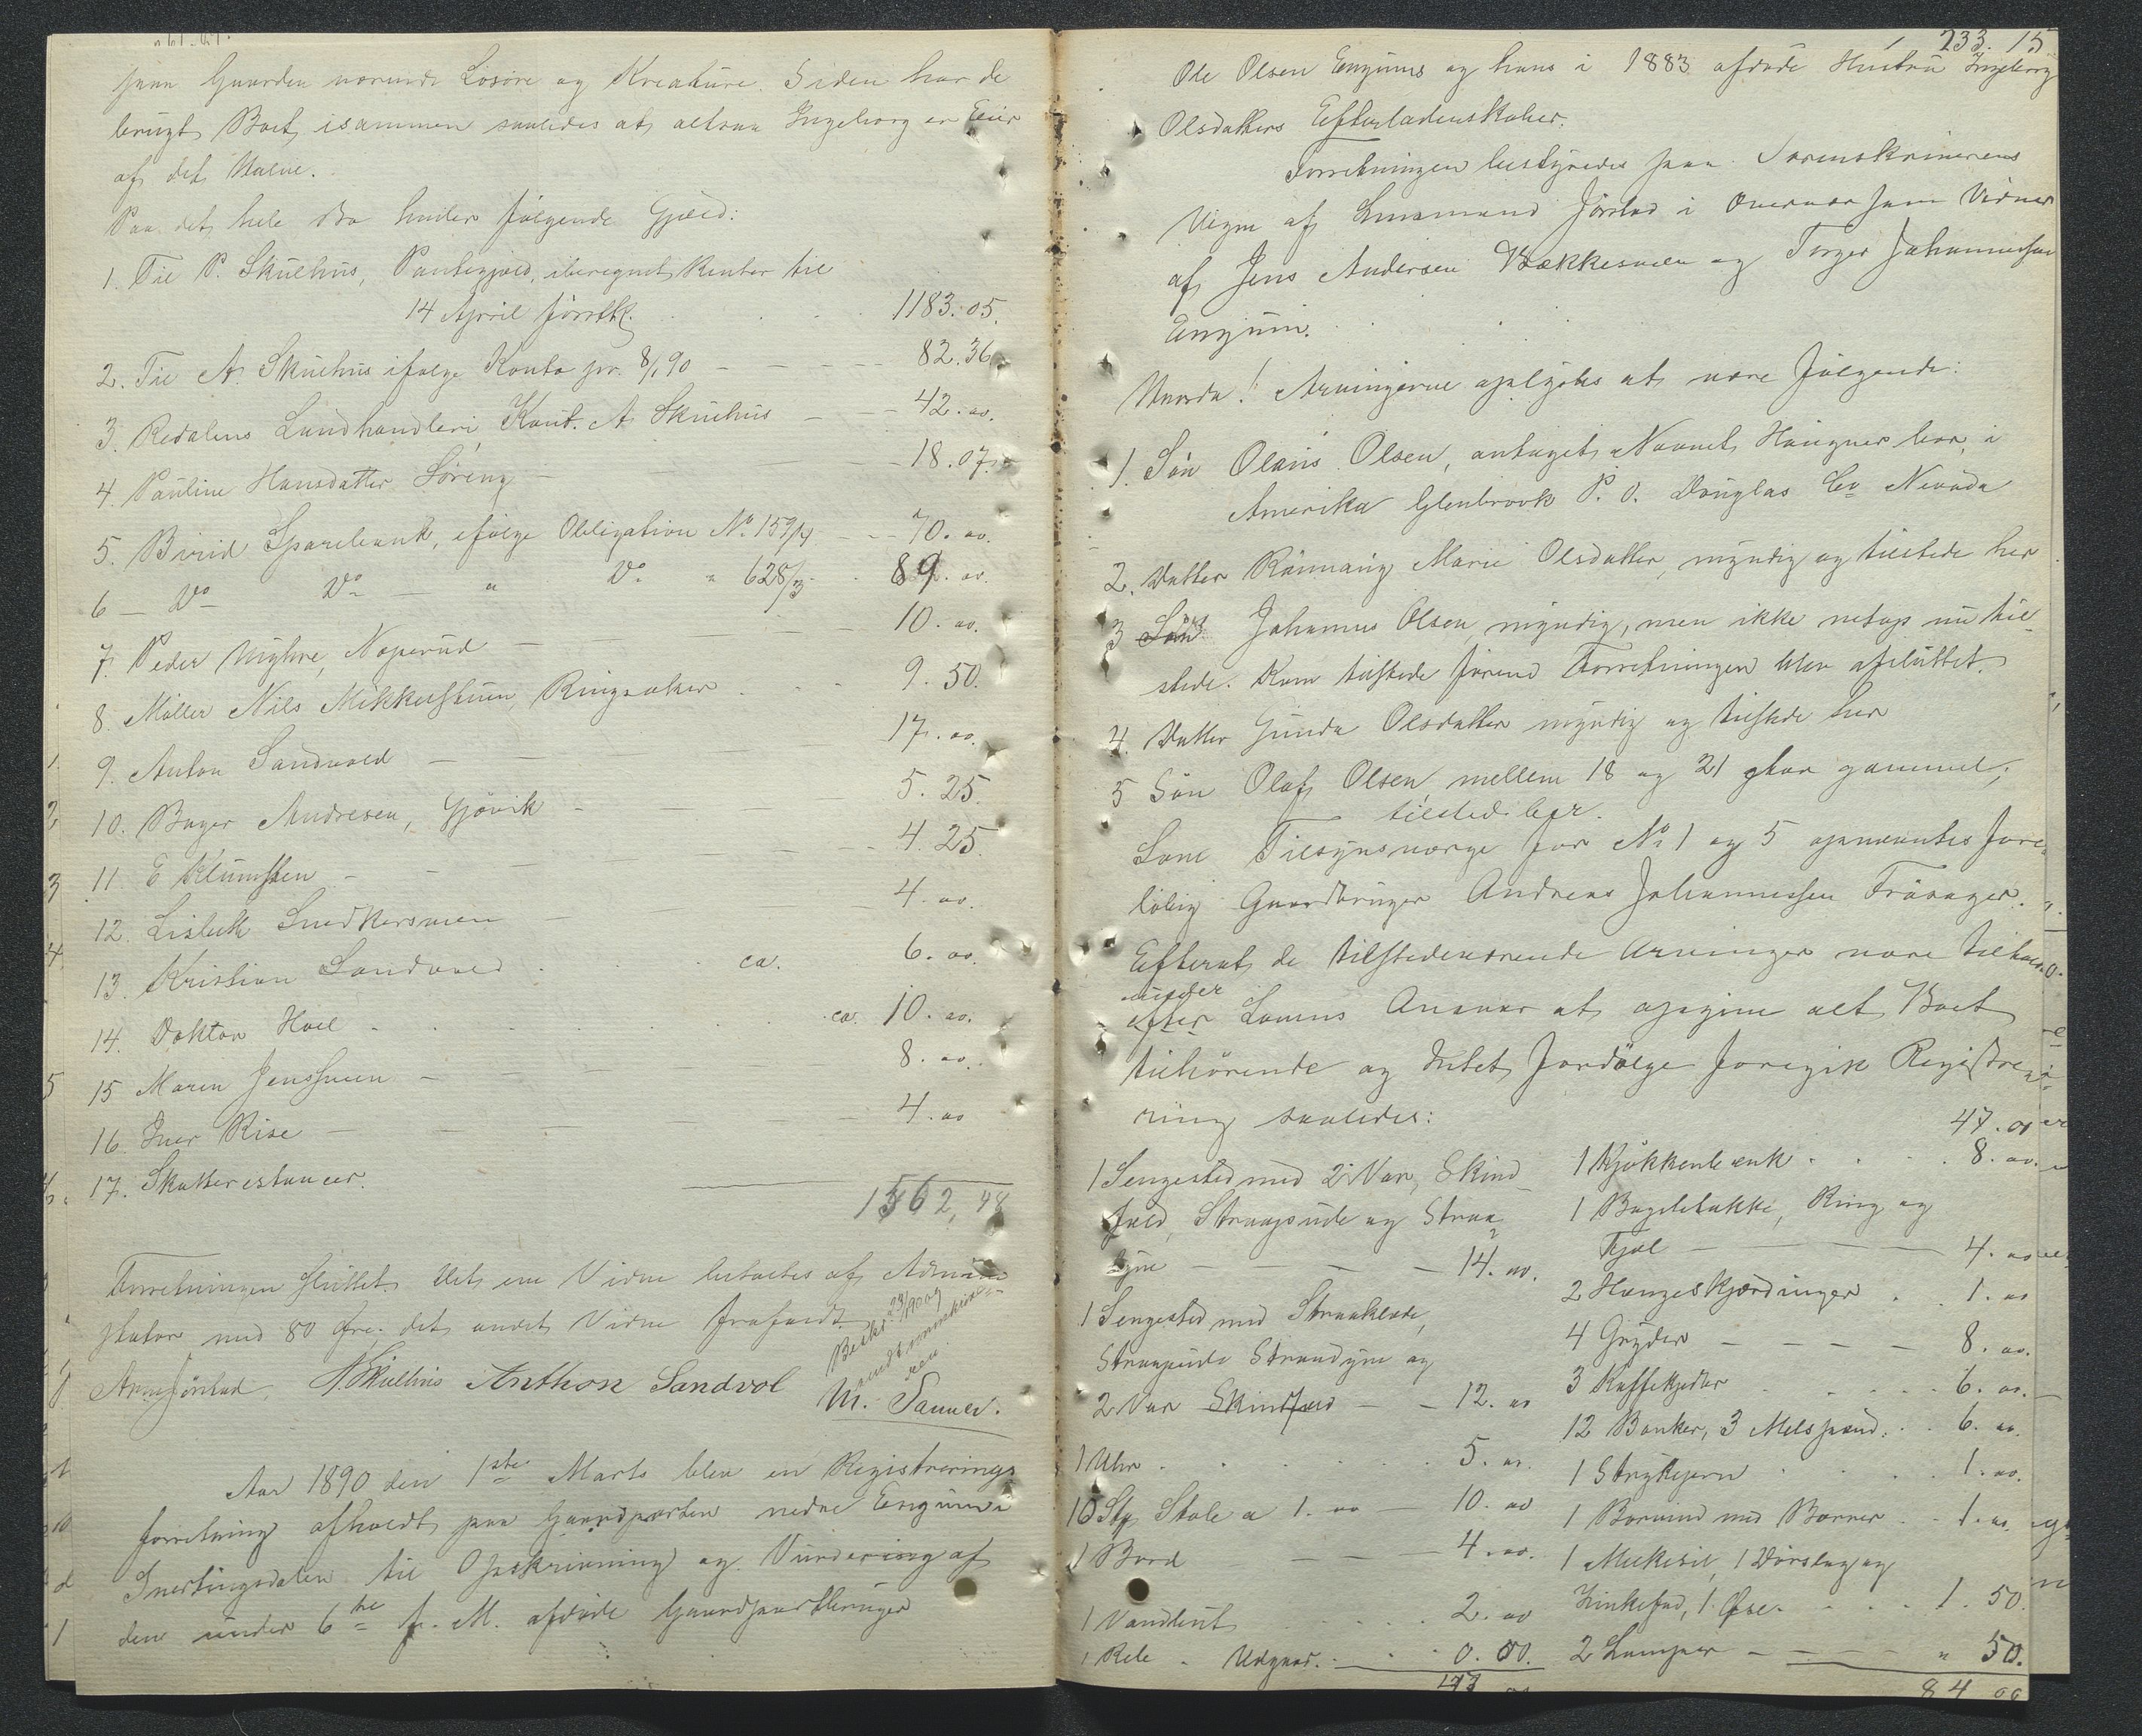 paa Gaarden værende Løsøre og Kreature. Siden har de
brugt Boet isammen saaledes at altsaa Ingeborg er Eier
af det Halve.
Paa det hele Bo hviler følgende Gjæld:
1. Til P. Skulhus, Pantegjæld, iberegnet Renter til
14 April førstk. 1183.05.
2. Til A. Skulhus ifølge Konto pr. 8/1 90 - - - 82.36
3. Redalens Landhandleri, Kont. A. Skulhus - - 42.00.
4. Pauline Hansdatter Søreng - - - 18.07.
5. Birid Sparebank, ifølge Obligation No. 159/4 - - 70.00.
6 - Do Do - " Do " 628/3 - 89.00.
7. Peder Nøperud - - - 10.00.
8. Møller Nils Mikkelstuen, Ringsaker - - - 9.50.
9. Anton Sandvold - - - 17.00.
10. Bager Andresen, Gjøvik - - - 5.25.
11 E Klumsten - - - 4.25.
12. Lisbeth Snedkersveen - - - 4.00.
13. Kristian Sandvold . . . ca. 6.00.
14. Doktor Hoel . . . ca. 10.00.
15 Maren Jensstuen - - - 8.00.
16. Iver Rise - - - 4.00
17. Skatterestancer.
1562,48
Forretningen sluttet. Det ene Vidne betaltes af Admini
strator med 80 Øre; det andet Vidne frafaldt
Beskr. 23/1 90 og
Arne Jørstad. A. Skullhus Anthon Sandvol M. Sanner.
Aar 1890 den 1ste Marts blev en Registrerings
forretning afholdt paa Gaardparten nedre Engum i
Snertingdalen til Opskrivning og Vurdering af
den under 6te f. M. afdøde Gaardpartbruger
233. 15
Ole Olsen Engums og hans i 1883 afdøde Hustru Ingeborg
Olsdatters Efterladenskaber.
Forretningen bestyredes paa Sorenskriverens
Vegne af Lensmand Jørstad i Overvær som Vidner
af Jens Andersen Bækkesveen og Torger Johannessen
Engum.
Arvingerne oplystes at være følgende:
1. Søn Olaus Olsen, antaget Navnet Haugner bor i
Amerika Glenbrook P. O. Douglas Co Nevada
2. Datter Rønnaug Marie Olsdatter, myndig og tilstede her
3 Søn Johannes Olsen myndig, men ikke netop nu til-
stede. Kom tilstede førend Forretningen blev afsluttet.
4. Datter Gunda Olsdatter myndig og tilstede her
5 Søn Olaf Olsen, mellem 18 og 21 Aar gammel;
tilsted her.
Som Tilsynsværge for No 1 og 5 opnævntes fore-
løbig Gaardbruger Andreas Johannessen Frøsager.
Efterat de tilstedeværende Arvinger vare tilholdt
under
efter Lovens Ansvar at opgive alt Boet
tilhørende og Intet fordølge foregik Registre-
ring saaledes:
1 Sengested med 2 Var, Skind
fæld, Straapude og Straa
dyne - - - 14.00.
1 Sengested med Straaklæde,
Straapude Straadyne og
2 Var Skindfæld - - 12.00
1 Uhr . . . 5.00.
10 Stk Stole a 1.00 - 10.00
1 Bord - - - 4.00.
1 Vandbut . . . 2.00
1 Rele - Udgaar. - 0.00.
47 00
47.00
1 Kjøkkenbænk . . . 8.00.
1 Bagebakke, Ring og
Fjøl - - - 4.00
2 Hængeskjærdinger . . 1.00
4 Gryder - - - 8.00.
3 Kaffekjedler . . . 6.00.
12 Bonker, 3 Melspand . . 6.00.
1 Strykejern . . . 1.00.
1 Borvind med Borrer . . 1.00.
1 Melkesil, 1 Dørslag og
Zinkefad, 1 Øse . . . 1.50.
2 Lamper - - - " 50.
84 00